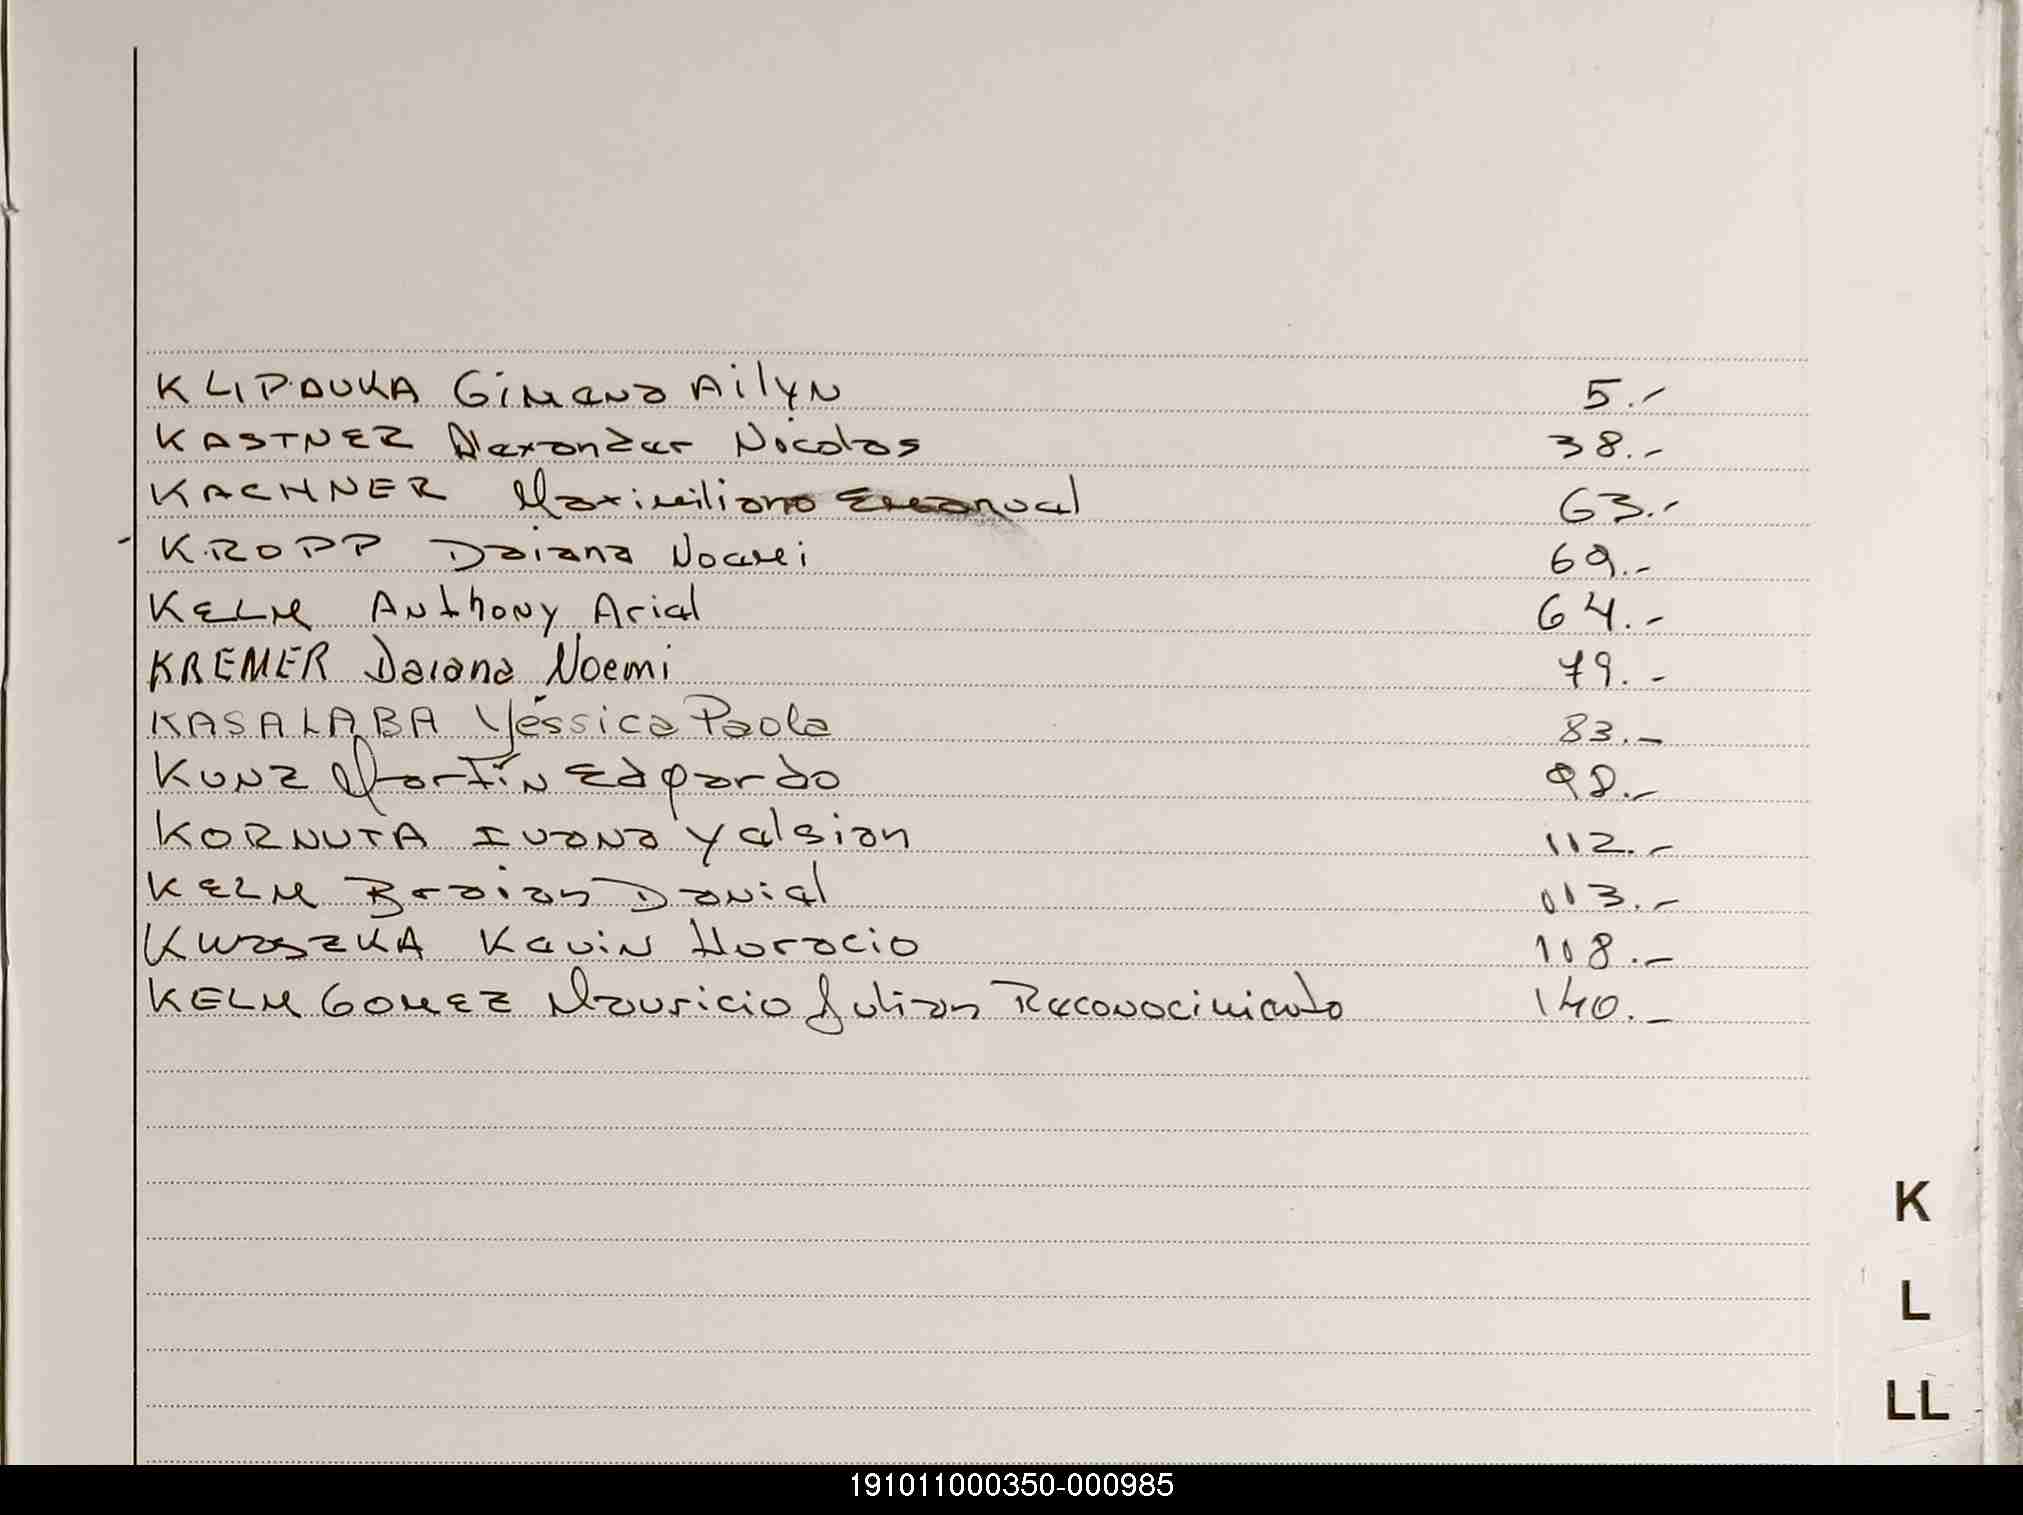 KLIPAUKA Gimena Ailyn 5.-
KASTNER Alexander Nicolas 38.-
KACHNER Maximiliano Emanuel 63.-
KROPP Daiana Noemi 69.-
KELM Anthony Ariel 64.-
KREMER Daiana Noemi 79.-
KASALABA Yéssica Paola 83.-
KUNZ Martín Edgardo 98.-
KORNUTA Ivana Yalsian 112.-
KELM Braian Daniel 113.-
KWASZKA Kevin Horacio 118.-
KELM GOMEZ Mauricio Julian Reconocimiento 140.-
K
L
LL
191011000350-000985